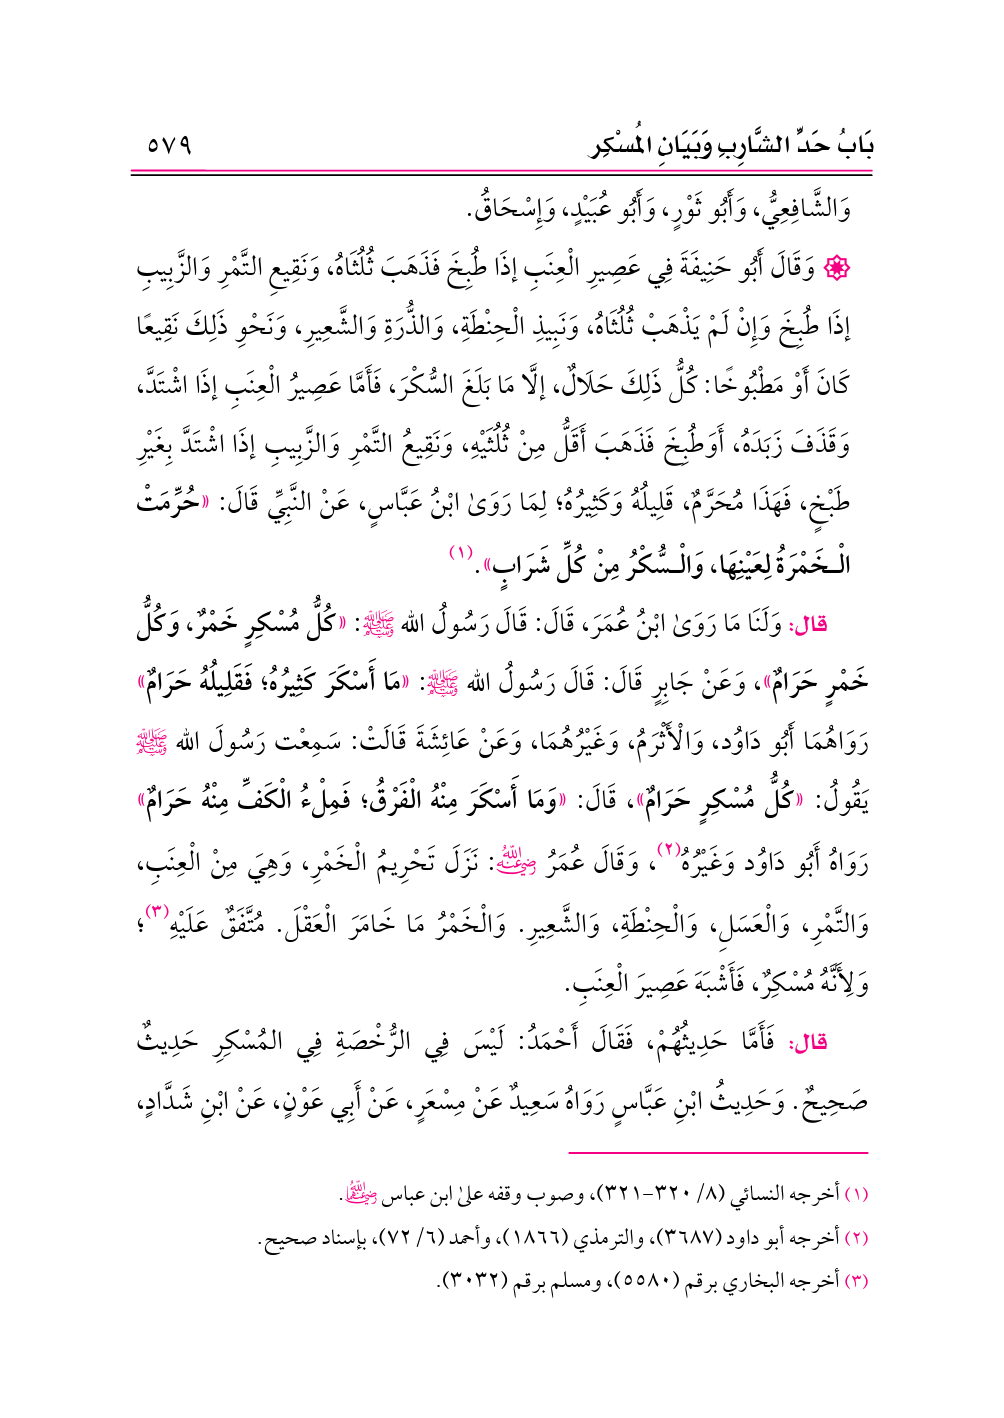 بَابُ حَدِّ الشَّارِبِ وَبَيَانِ المُسْكِر ٥٧٩
وَالشَّافِعِيُّ، وَأَبُو ثَوْرٍ، وَأَبُو عُبَيْدٍ، وَإِسْحَاقُ.
وَقَالَ أَبُو حَنِيفَةَ فِي عَصِيرِ الْعِنَبِ إذَا طُبِخَ فَذَهَبَ ثُلُثَاهُ، وَنَقِيعِ التَّمْرِ وَالزَّبِيبِ
إذَا طُبِخَ وَإِنْ لَمْ يَذْهَبْ ثُلُثَاهُ، وَنَبِيذِ الْحِنْطَةِ، وَالذُّرَةِ وَالشَّعِيرِ، وَنَحْوِ ذَلِكَ نَقِيعًا
كَانَ أَوْ مَطْبُوخًا: كُلُّ ذَلِكَ حَلَالٌ، إلَّا مَا بَلَغَ السُّكْرَ، فَأَمَّا عَصِيرُ الْعِنَبِ إذَا اشْتَدَّ،
وَقَذَفَ زَبَدَهُ، أَوَطُبِخَ فَذَهَبَ أَقَلُّ مِنْ ثُلُثَيْهِ، وَنَقِيعُ التَّمْرِ وَالزَّبِيبِ إذَا اشْتَدَّ بِغَيْرِ
طَبْخٍ، فَهَذَا مُحَرَّمٌ، قَلِيلُهُ وَكَثِيرُهُ؛ لِمَا رَوَىٰ ابْنُ عَبَّاسٍ، عَنْ النَّبِيِّ قَالَ: «حُرِّمَتْ
الْـخَمْرَةُ لِعَيْنِهَا، وَالْـسُّكْرُ مِنْ كُلِّ شَرَابٍ».(١)
قال: وَلَنَا مَا رَوَىٰ ابْنُ عُمَرَ، قَالَ: قَالَ رَسُولُ الله ﷺ: «كُلُّ مُسْكِرٍ خَمْرٌ، وَكُلُّ
خَمْرٍ حَرَامٌ»، وَعَنْ جَابِرٍ قَالَ: قَالَ رَسُولُ الله ﷺ: «مَا أَسْكَرَ كَثِيرُهُ؛ فَقَلِيلُهُ حَرَامٌ»
رَوَاهُمَا أَبُو دَاوُد، وَالْأَثْرَمُ، وَغَيْرُهُمَا، وَعَنْ عَائِشَةَ قَالَتْ: سَمِعْت رَسُولَ الله ﷺ
يَقُولُ: «كُلُّ مُسْكِرٍ حَرَامٌ»، قَالَ: «وَمَا أَسْكَرَ مِنْهُ الْفَرْقُ؛ فَمِلْءُ الْكَفِّ مِنْهُ حَرَامٌ»
رَوَاهُ أَبُو دَاوُد وَغَيْرُهُ(٢)، وَقَالَ عُمَرُ رضي الله عنه: نَزَلَ تَحْرِيمُ الْخَمْرِ، وَهِيَ مِنْ الْعِنَبِ،
وَالتَّمْرِ، وَالْعَسَلِ، وَالْحِنْطَةِ، وَالشَّعِيرِ. وَالْخَمْرُ مَا خَامَرَ الْعَقْلَ. مُتَّفَقٌ عَلَيْهِ(٣)؛
وَلِأَنَّهُ مُسْكِرٌ، فَأَشْبَهَ عَصِيرَ الْعِنَبِ.
قال: فَأَمَّا حَدِيثُهُمْ، فَقَالَ أَحْمَدُ: لَيْسَ فِي الرُّخْصَةِ فِي المُسْكِرِ حَدِيثٌ
صَحِيحٌ. وَحَدِيثُ ابْنِ عَبَّاسٍ رَوَاهُ سَعِيدٌ عَنْ مِسْعَرٍ، عَنْ أَبِي عَوْنٍ، عَنْ ابْنِ شَدَّادٍ،
(١) أخرجه النسائي (٨/ ٣٢٠-٣٢١)، وصوب وقفه علىٰ ابن عباس رضي الله عنهما.
(٢) أخرجه أبو داود (٣٦٨٧)، والترمذي (١٨٦٦)، وأحمد (٦/ ٧٢)، بإسناد صحيح.
(٣) أخرجه البخاري برقم (٥٥٨٠)، ومسلم برقم (٣٠٣٢).